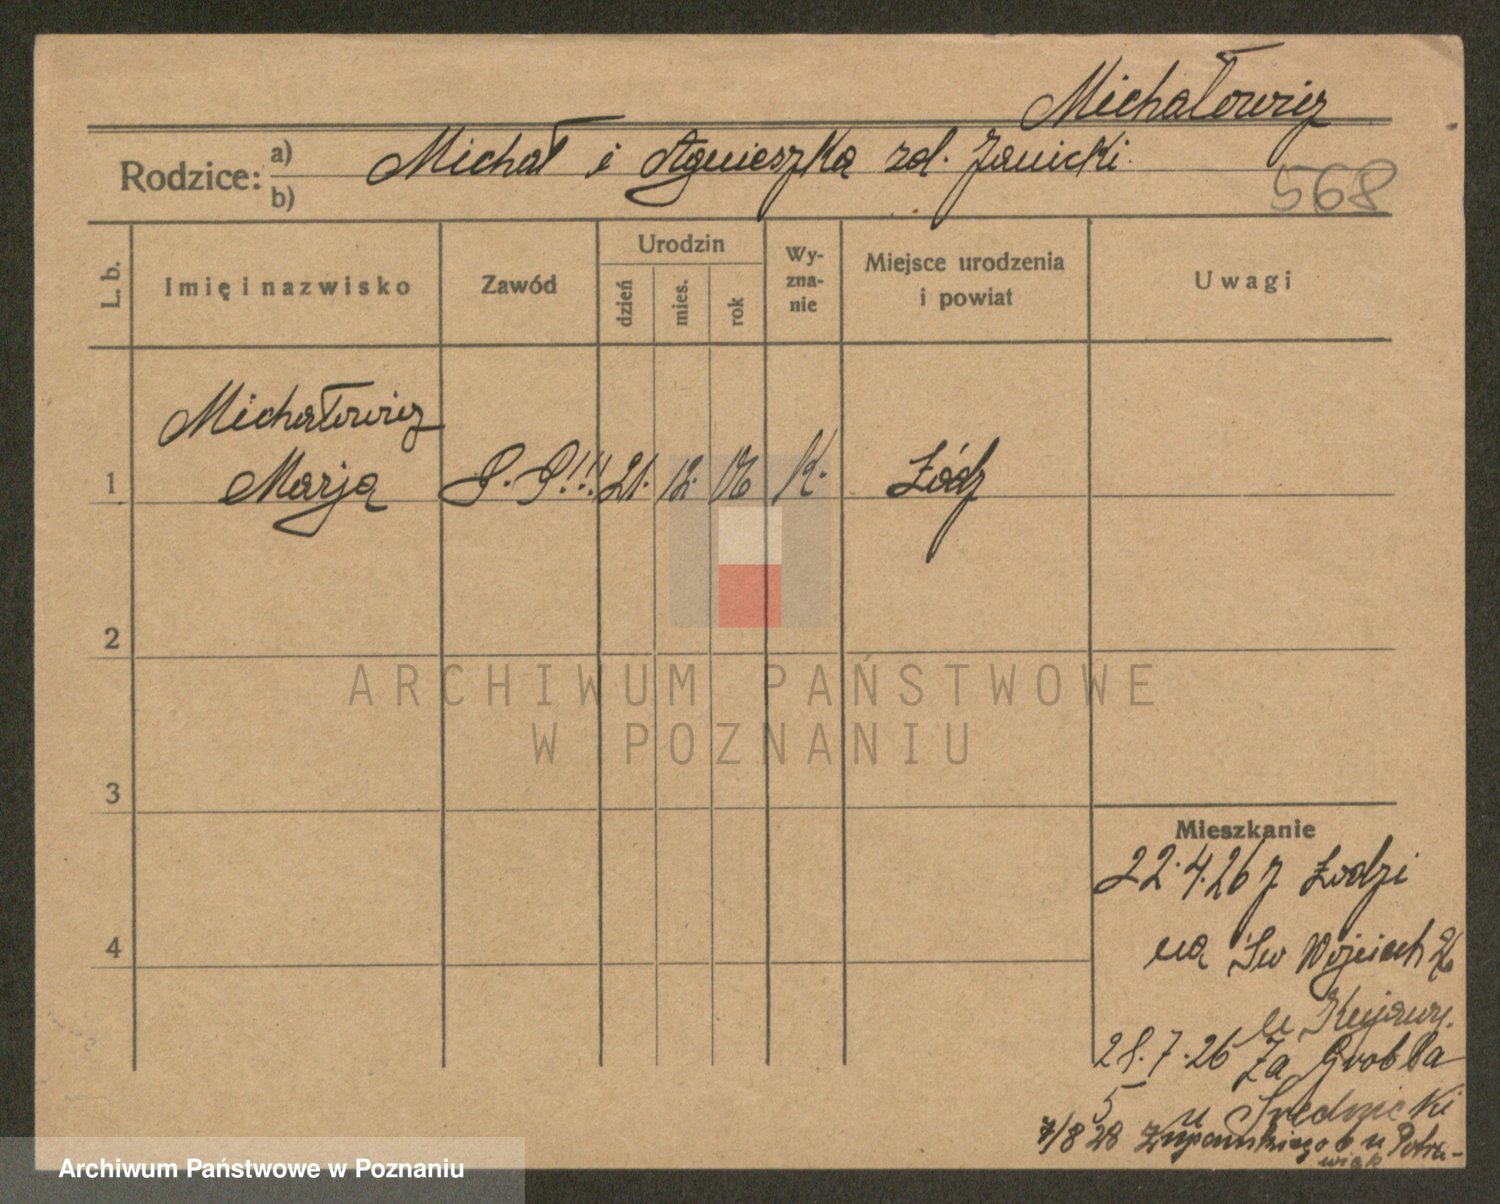 Michałowicz
Rodzice: a) b)
Michał i Agnieszka zd. Janicki.
568
L. b.
Imię i nazwisko
Zawód
Urodzin
dzień
mies.
rok
Wy-
zna-
nie
Miejsce urodzenia
i powiat
Uwagi
Michałowicz
1 Marja 21. 12. 06 K. Łódź
2
3
4
Mieszkanie
22.4.26 z Łodzi
na Św Wojciech
u
28.7.26 Za Grobla
5 u Średzicki
7/8 28 Żupańskiego 6 u Potru-
wiak
ARCHIWUM PAŃSTWOWE
W POZNANIU
Archiwum Państwowe w Poznaniu